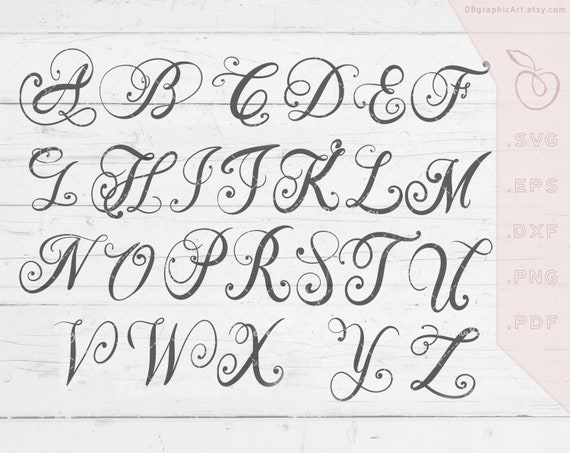 DBgraphicArt.etsy.com
A B C D E F
G H I J K L M
N O P R S T U
V W X Y Z
.SVG
.EPS
.DXF
.PNG
.PDF